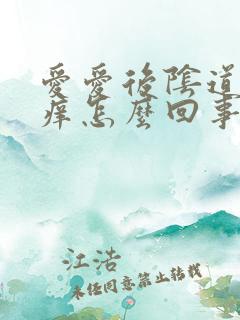 愛愛後陰道
痒怎麼回事
江浩
未经同意禁止转载